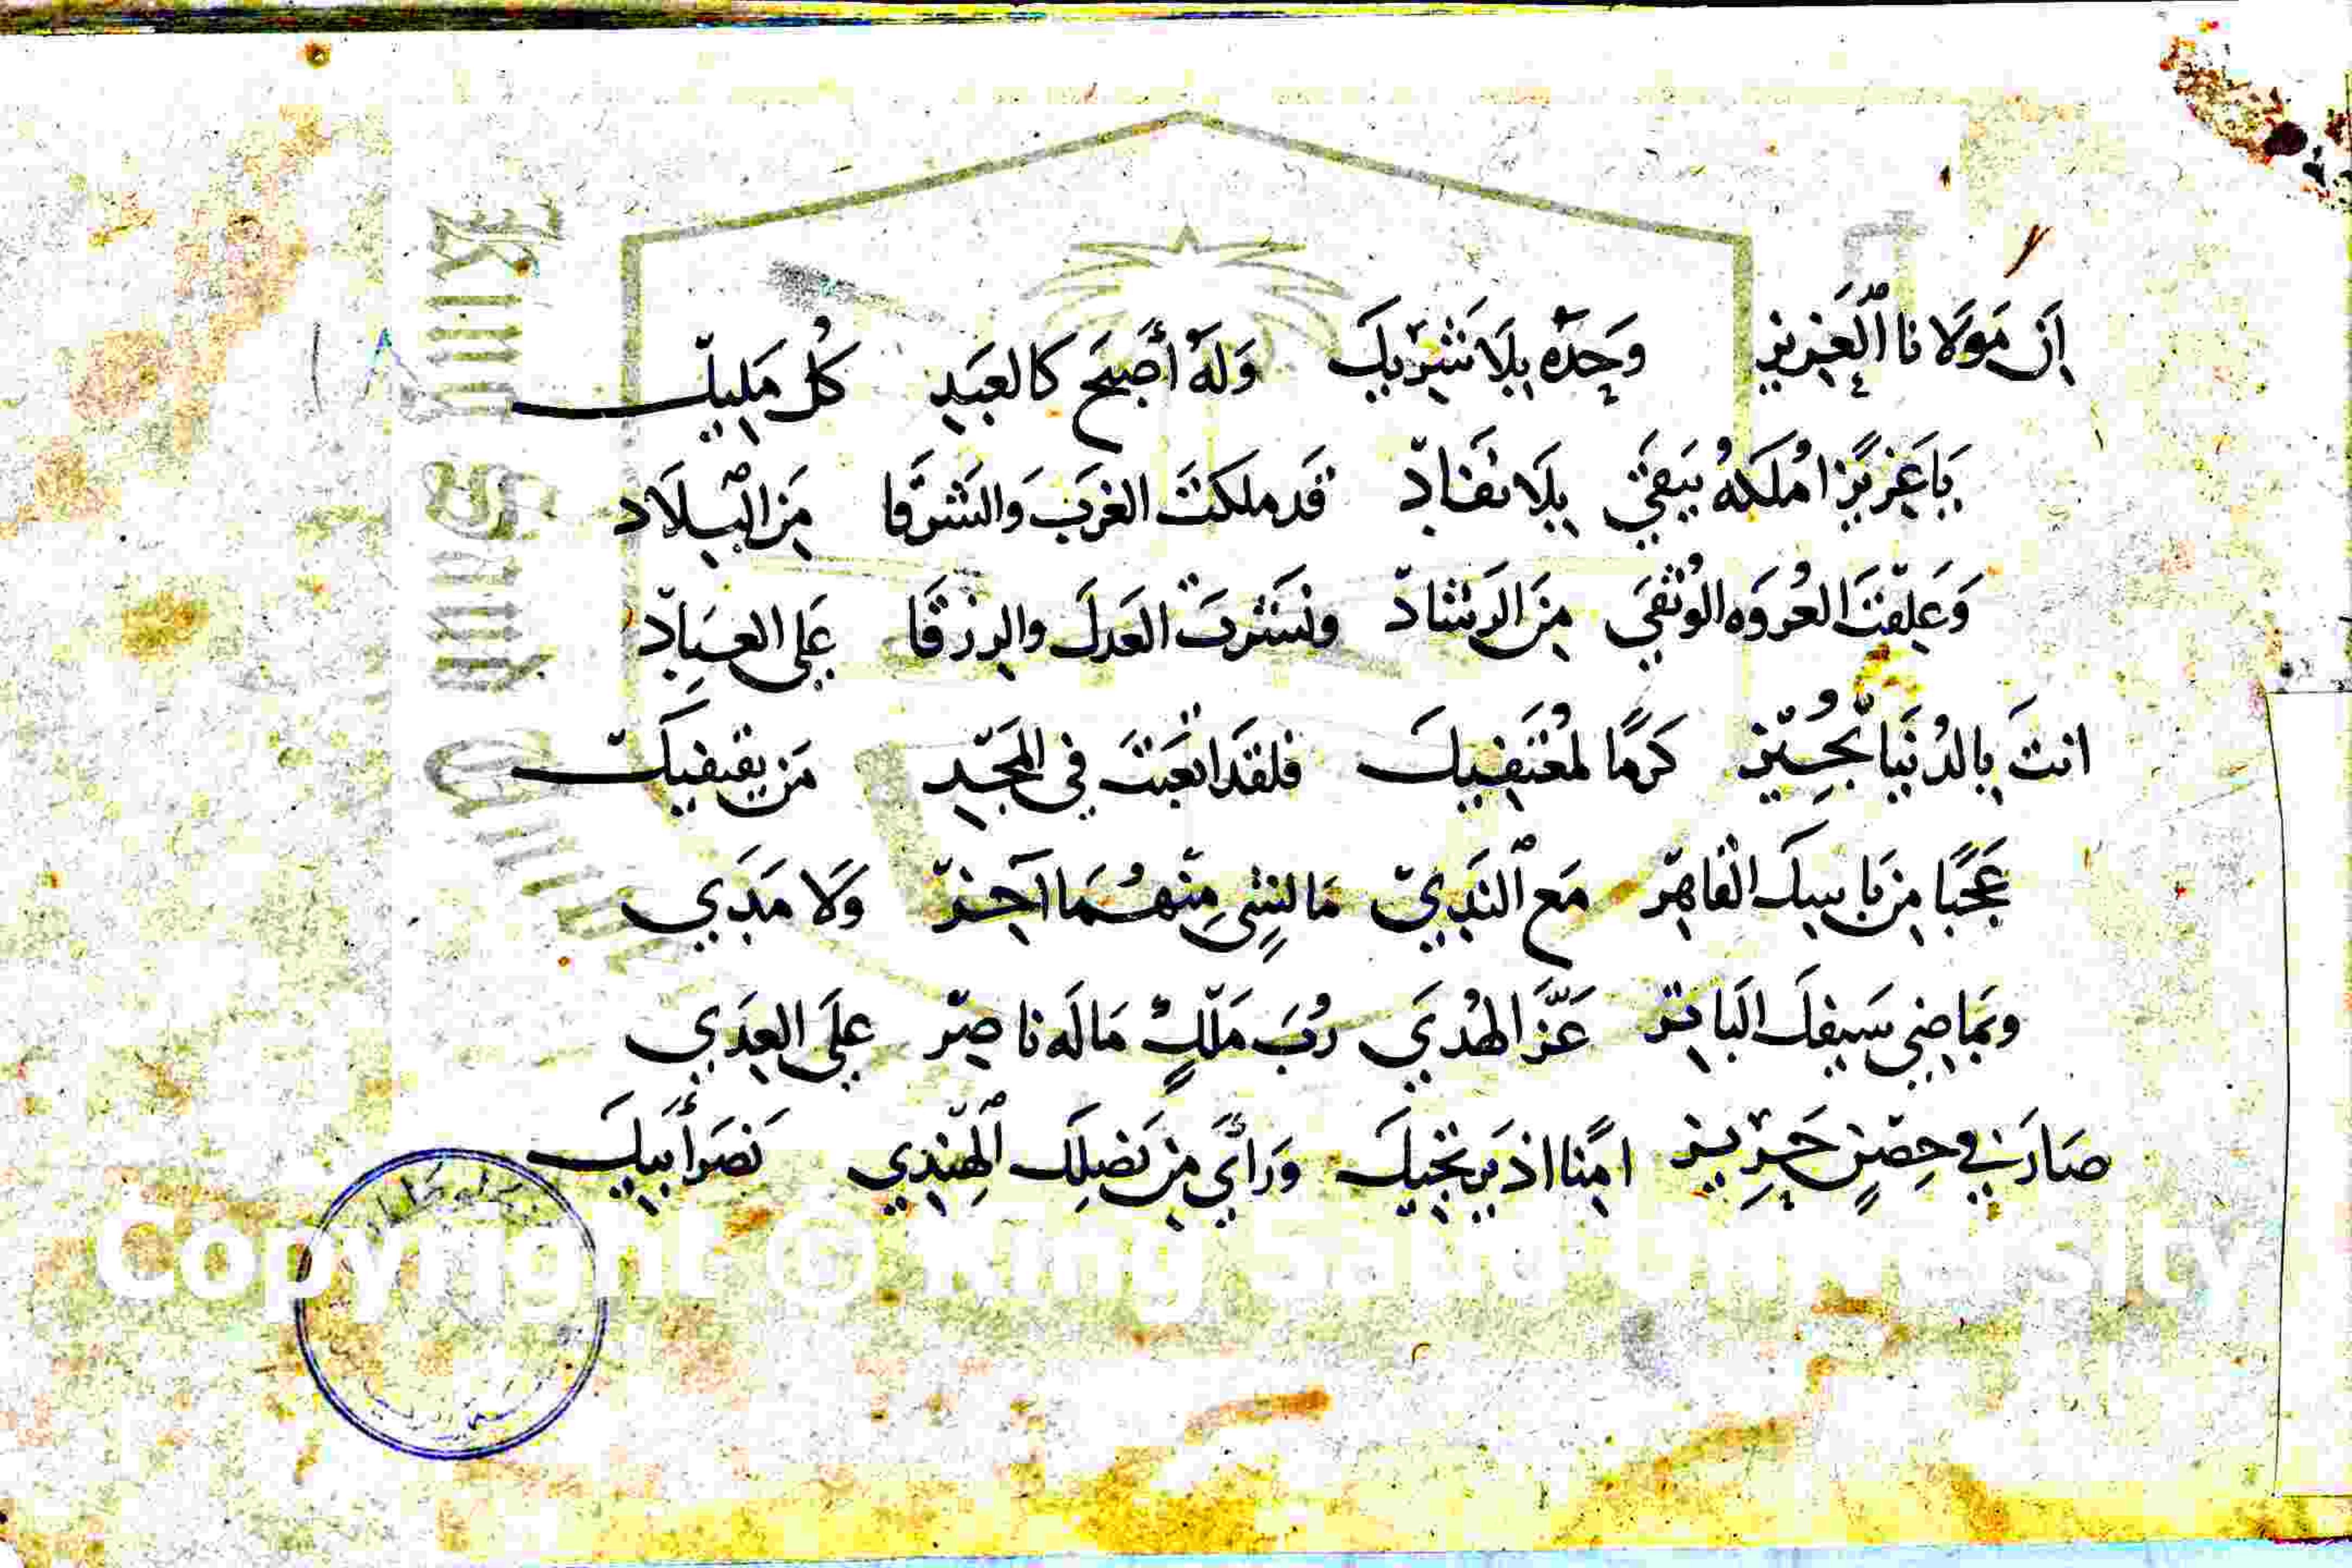 اِنَّ مَولَانا اَلْعَزِيز وَحدَهُ بِلَا شَرِيكَ وَلَهُ أصبَحَ كالعَبدِ كُل مَلِيك
يَا عَزِيزًا مُلكَهُ يَبقَي بِلَا نَفَادِ قَد ملكتَ الغَربَ وَالشرقَا مِنَ البِلَاد
وَعَلِقتَ العُروَه الوُثقَي مِنَ الرَشَاد ونَشَرتَ العَدلَ والرِزقَا عَلي العِبَاد
انتَ بِالدُنيَا تُجِيز كَرَمًا لمُعتَفِيكَ فلقَد اتعَبتَ في المَجدِ مَن يقتفيك
عَجَبًا مِن بَاسِكَ القَاهِر مَع النَدِي مَا لشئٍ مِنهُمَا آخِر وَلَا مَدَي
وبمَاضِي سَيفِكَ البَاتِر عَزَّ الهُدَي رُبَ مَلكٍ مَا لَه ناصِر عَلَي العِدَي
صَارَ في حِصنٍ حَرِيز امِنًا اذ يَرتجيكَ وَرَأَي مِن نَصلِكَ الهِندِي نَصرَ أَبِيكَ
King Saud
Copyright © King Saud University